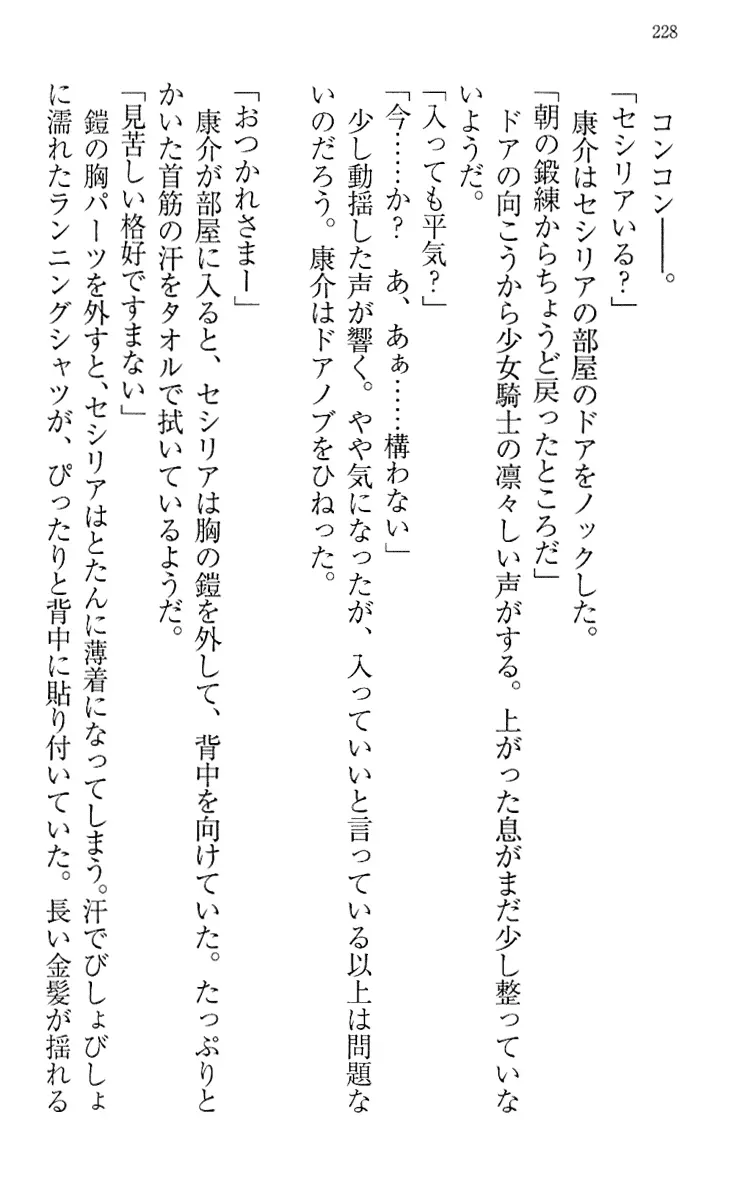 228
コンコン――。
「セシリアいる？」
康介はセシリアの部屋のドアをノックした。
「朝の鍛練からちょうど戻ったところだ」
ドアの向こうから少女騎士の凛々しい声がする。上がった息がまだ少し整っていな
いようだ。
「入っても平気？」
「今……か？　あ、あぁ……構わない」
少し動揺した声が響く。やや気になったが、入っていいと言っている以上は問題な
いのだろう。康介はドアノブをひねった。
「おつかれさまー」
康介が部屋に入ると、セシリアは胸の鎧を外して、背中を向けていた。たっぷりと
かいた首筋の汗をタオルで拭いているようだ。
「見苦しい格好ですまない」
鎧の胸パーツを外すと、セシリアはとたんに薄着になってしまう。汗でびしょびしょ
に濡れたランニングシャツが、ぴったりと背中に貼り付いていた。長い金髪が揺れる